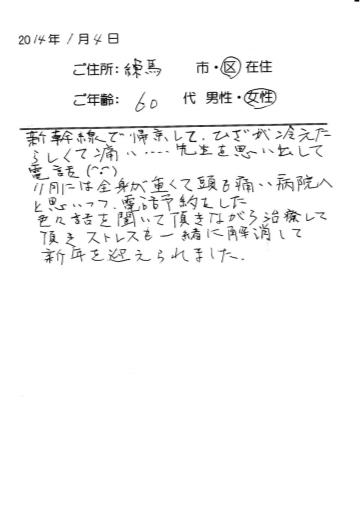 2014年1月4日
ご住所:練馬 市・区在住
ご年齢:60 代 男性・女性
新幹線で帰京して、ひざが冷えた
らしくて痛い…‥先生を思い出して
電話(^^)
11月には全身が重くて頭も痛い病院へ
と思いつつ、電話予約をした
色々話を聞いて頂きながら治療して
頂きストレスも一緒に解消して
新年を迎えられました。